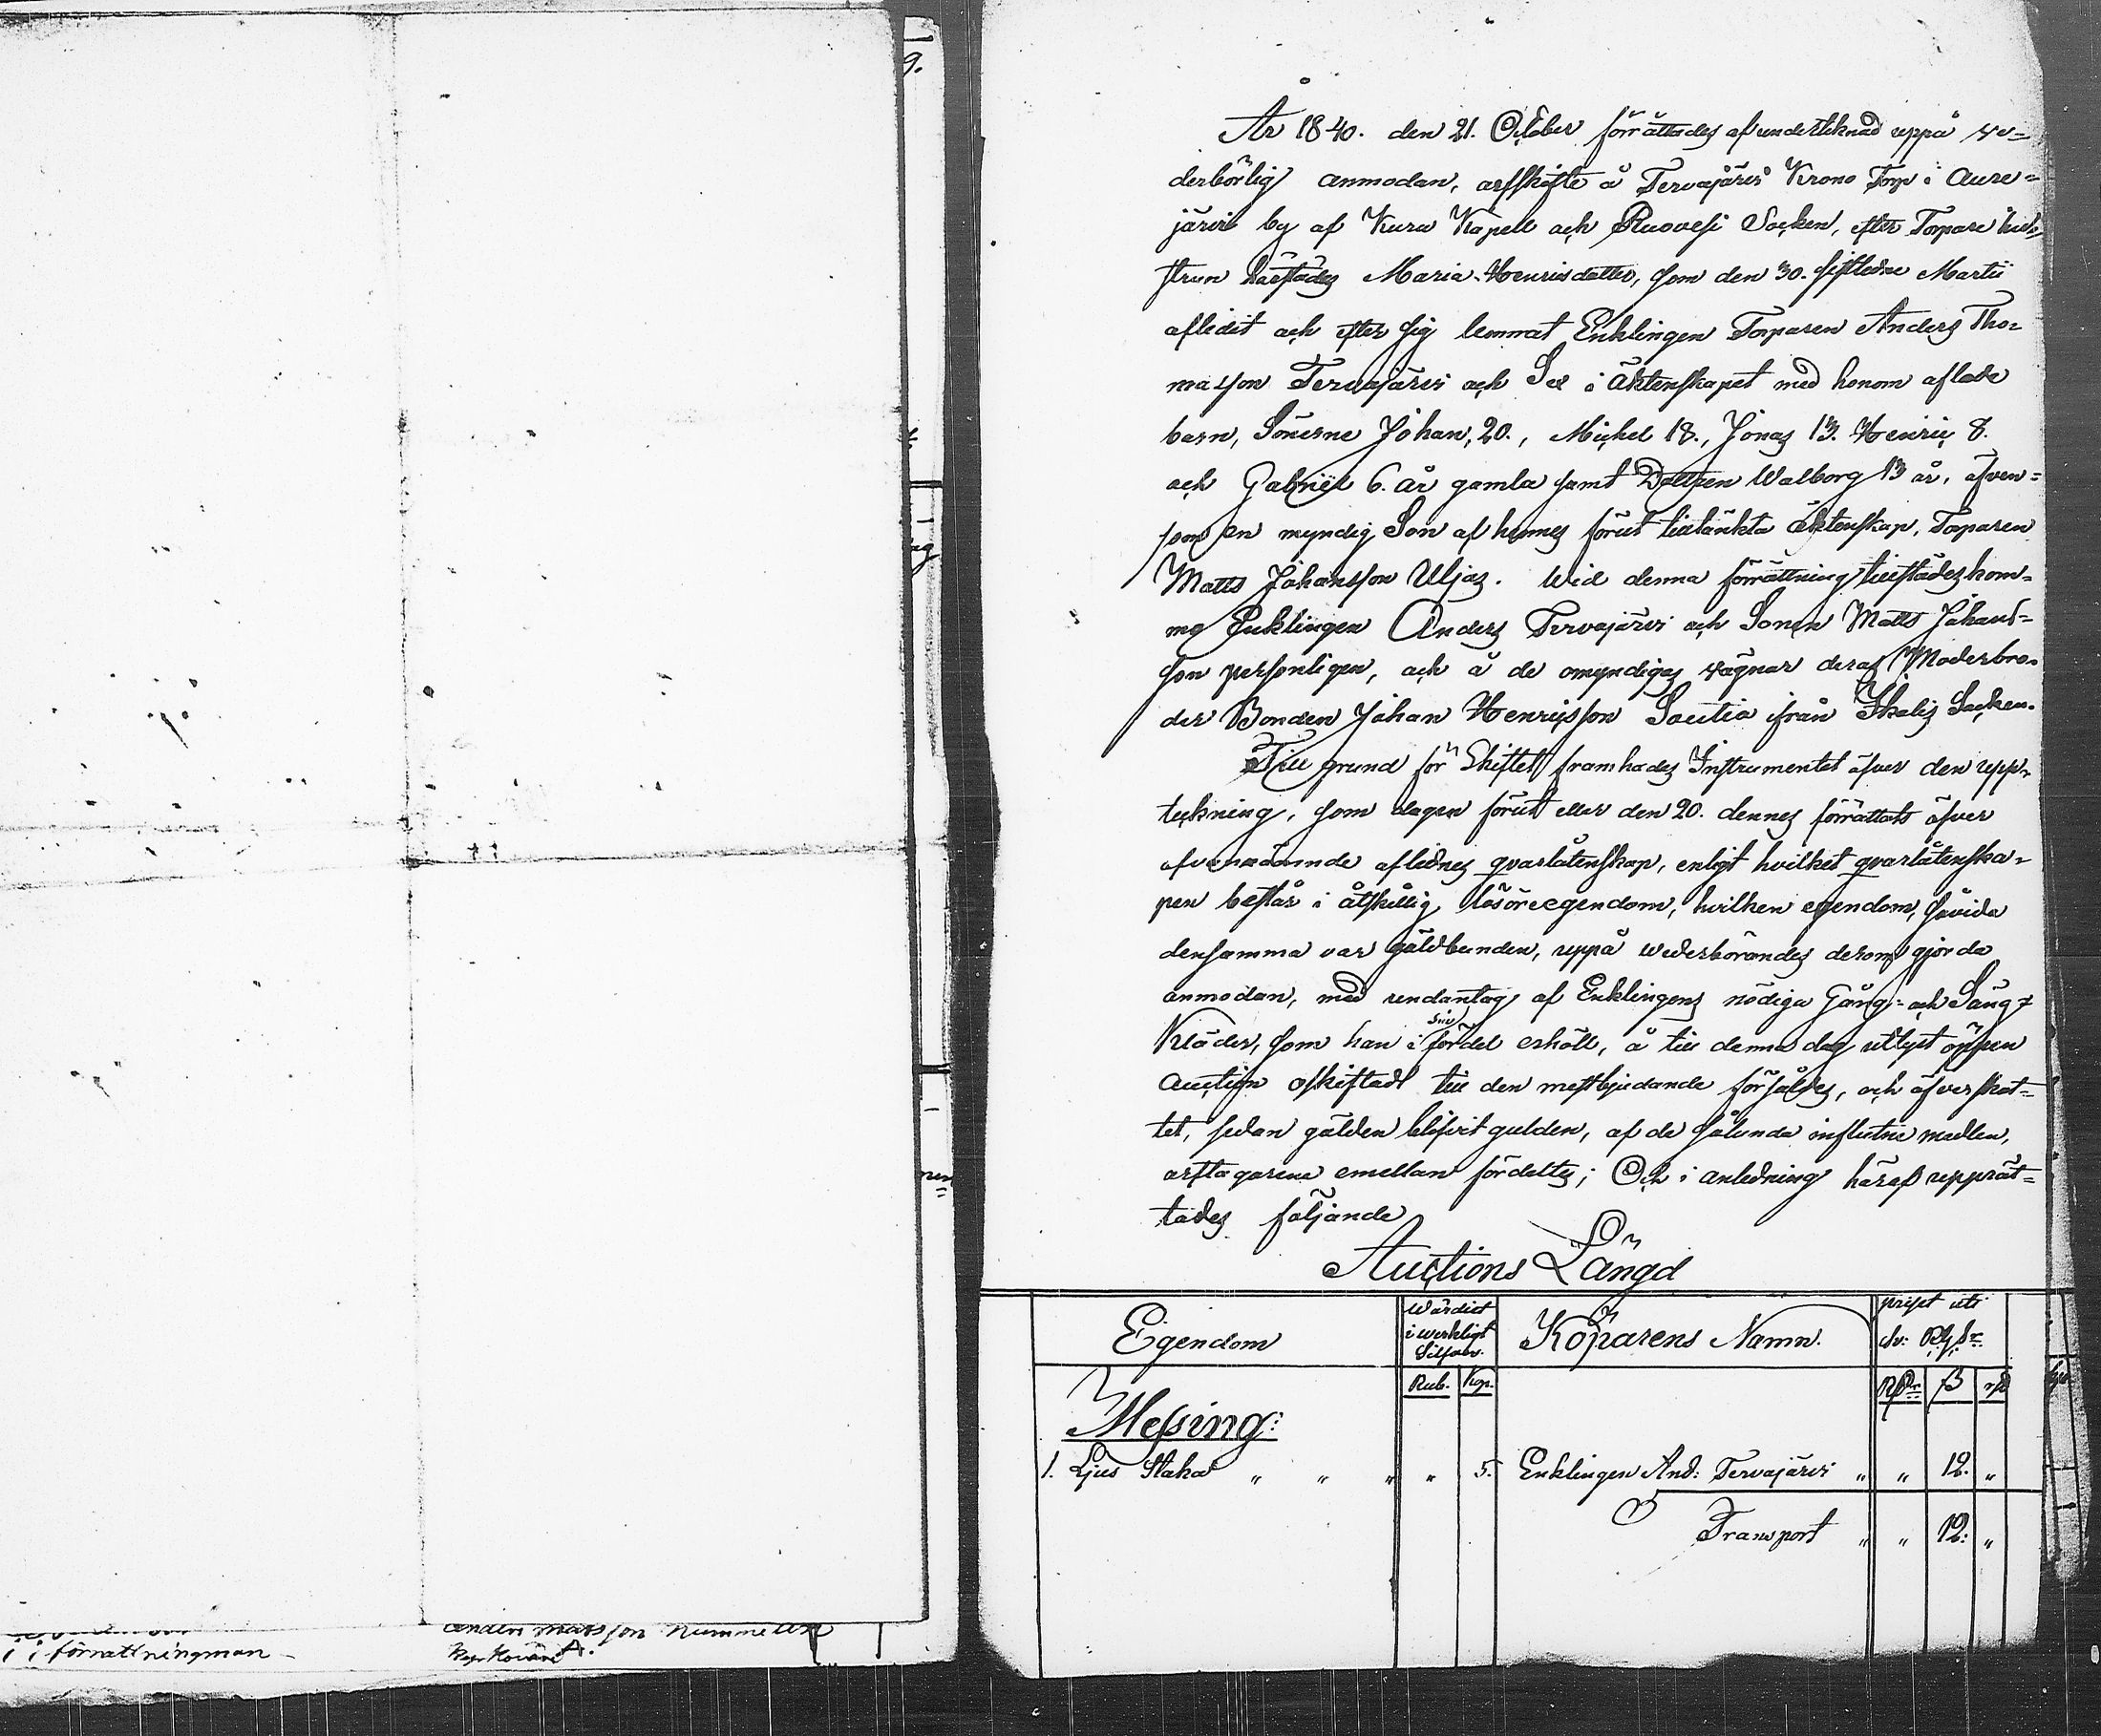 9.
År 1840. den 21. October förrättades af undertecknad uppå ve-
derbörlig anmodan, arfskifte å Tervajärvi Krono Torp i Aure-
järvi by af Kuru Kapell och Ruovesi Socken, efter Torpare hu-
strun därstädes Maria Henricsdotter, som den 30. sistledne Martii
aflidit och efter sig lemnat Enklingen Torparen Anders Tho-
masson Tervajärvi och Sex i äktenskapet med honom aflade
barn, Sönerne Johan, 20., Michel 18., Jonas 13. Henric 8.
och Gabriel 6. år gamla samt Dottren Walborg 13 år, äfven-
som en myndig Son af hennes förut äktenskap, Torparen
Matts Johansson Uljas. Wid denna förrättning tillstädes kom-
mo Enklingen Anders Tervajärvi och Sonen Matts Johans-
son personligen, och å de omyndigas vägnar deras Moderbro-
der Bonden Johan Henricsson Soutia ifrån Ikalis Socken.
Till grund för Skiftet framhades Instrumentet öfver den upp-
teckning, som dagen förut eller den 20. dennes förrättats öfver
ofvannämnde aflidnes qvarlåtenskap, enligt hvilket qvarlåtenska-
pen består i åtskillig lösöreegendom, hvilken egendom, såvida
densamma var gäldbunden, uppå wederbörandes derom gjorda
anmodan, med undantag af Enklingens nödiga Gång- och Säng-
Kläder, som han i fördel erhöll, å till denna dag utlyst öppen
Auction oskiftadt till den mestbjudande försåldes, och öfverskot-
tet, sedan gälden blifvit gulden, af de sålunda influtne medlen,
arftagarene emellan fördeltes; Och i anledning häraf upprät-
tades följande
Auctions Längd
Egendom
Wärdiet
i werkligt
Silfver.
Köparens Namn.
priset uti
Sv: Rgs sr.
Rub. Kop.
Rdr ß rst
Messing:
1. Ljus Staka " " " " 5. Enklingen And: Tervajärvi " " 12. "
Transport " " 12. "
i förrättningman
Anders Matsson Nummelin